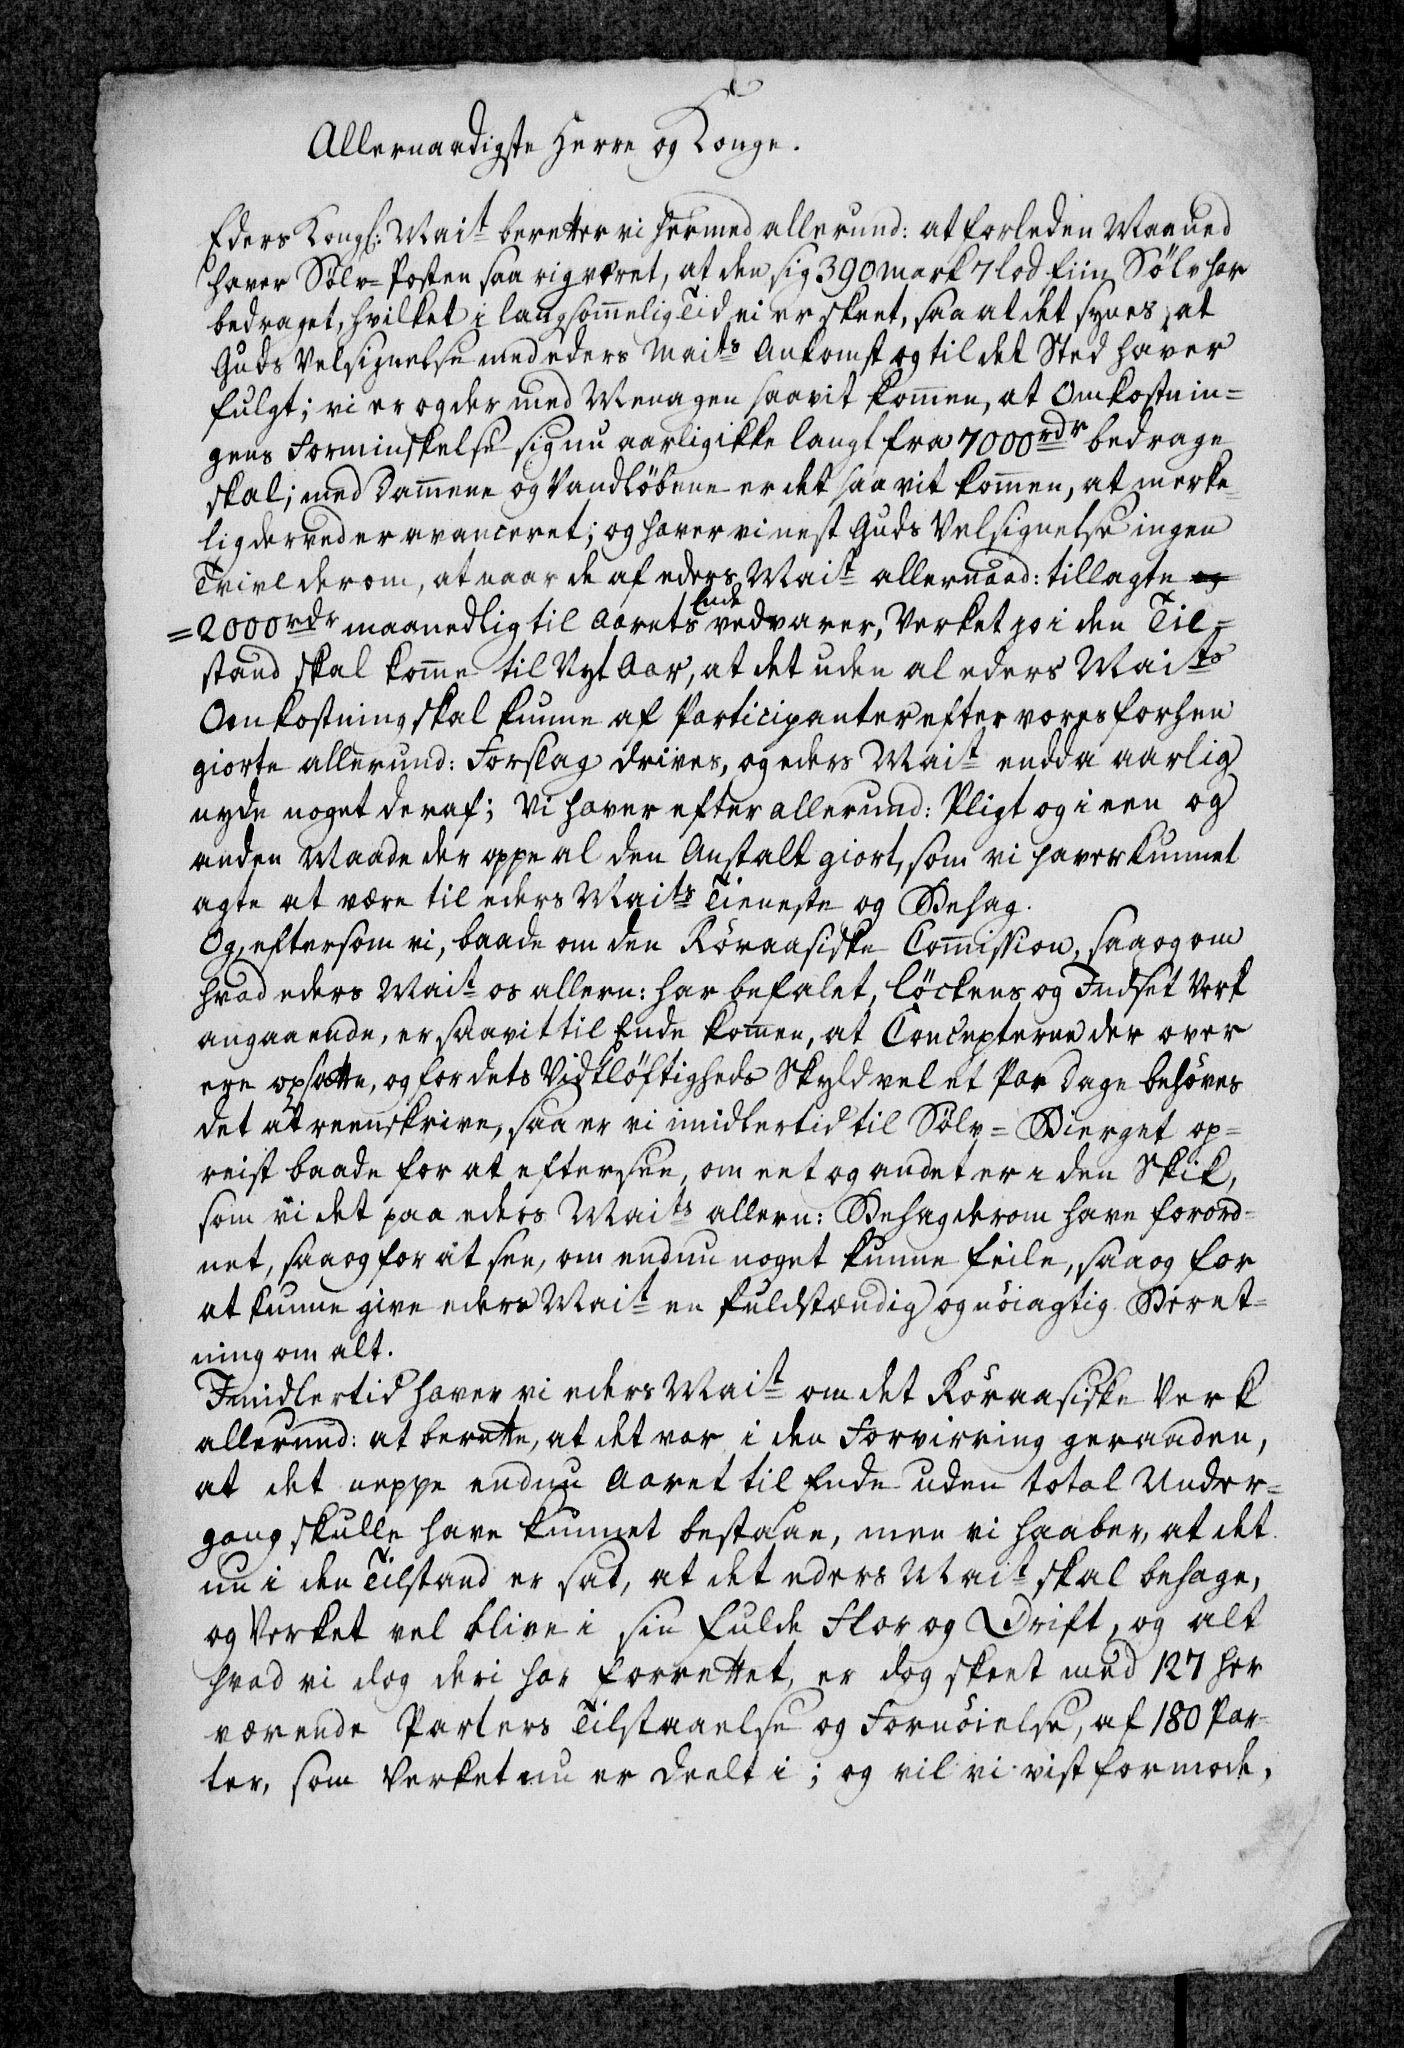 Allernaadigste Herre og Konge.
Eders Kongl: Mait beretter vi hermed allerund: at forleden Maaned
haver Sölv=Posten saa rig været, at den sig 390 mark 7 lod fiin Sölv har
bedraget, hvilket i langsom̄elig Tid ei er skeet, saa at det synes, at
Guds Velsignelse med eders Maits Ankomst og til det Sted haver
fulgt; vi er og der med Menagen saavit kom̄en, at Omkostnin=
gens Forminskelse sig nu aarlig ikke langt fra 7000 rdr bedrage
skal; med Dam̄ene og Vandlöbene er det saa vit kom̄en, at merke=
lig derved er avanceret; og haver vi nest Guds Velsignelse ingen
Tvivl derom, at naar de af eders Mait allernaad: tillagte og
=2000 rdr maanedlig til Aarets Ende vedvarer, Verket jo i den Til=
stand skal kom̄e til Nyt Aar, at det uden al eders Maits
Omkostning skal kunne af Participanter efter vores forhen
giorte allerund: Forslag drives, og eders Mait endda aarlig
nyde noget deraf; Vi haver efter allerund: Pligt og i een og
anden Maade der oppe al den Anstalt giort, som vi haver kunnet
agte at være til eders Maits Tieneste og Behag.
Og, eftersom vi, baade om den Röraasiske Com̄ission, saa og om
hvad eders Mait os allern: har befalet, Löckens og Indset Verk
angaaende, er saavit til Ende kom̄en, at Concepterne der over
ere opsatte, og for dets Vidtlöftigheds Skyld vel et Par Dage behöves
det at reenskrive, saa er vi imidlertid til Sölv=Bierget op=
reist baade for at eftersee, om eet og andet er i den Skik,
som vi det paa eders Maits allern: Behag derom have forord=
net, saa og for at see, om endnu noget kunne feile, saa og for
at kunne give eders Mait en fuldstændig og nöiagtig Beret=
ning om alt.
Imidlertid haver vi eders Mait om det Röraasiske Verk
allerund: at berette, at det var i den Forvirring geraaden,
at det neppe endnu Aaret til Ende uden total Under=
gang skulle have kunnet bestaae, men vi haaber, at det
nu i den Tilstand er sat, at det eders Mait skal behage,
og Verket vel blive i sin fulde Flor og Drift, og alt
hvad vi dog deri har forrettet, er dog skeet med 127 her
værende Parters Tilstaaelse og Fornöielse, af 180 Par=
ter, som Verket nu er deelt i; og vil vi vist formode,